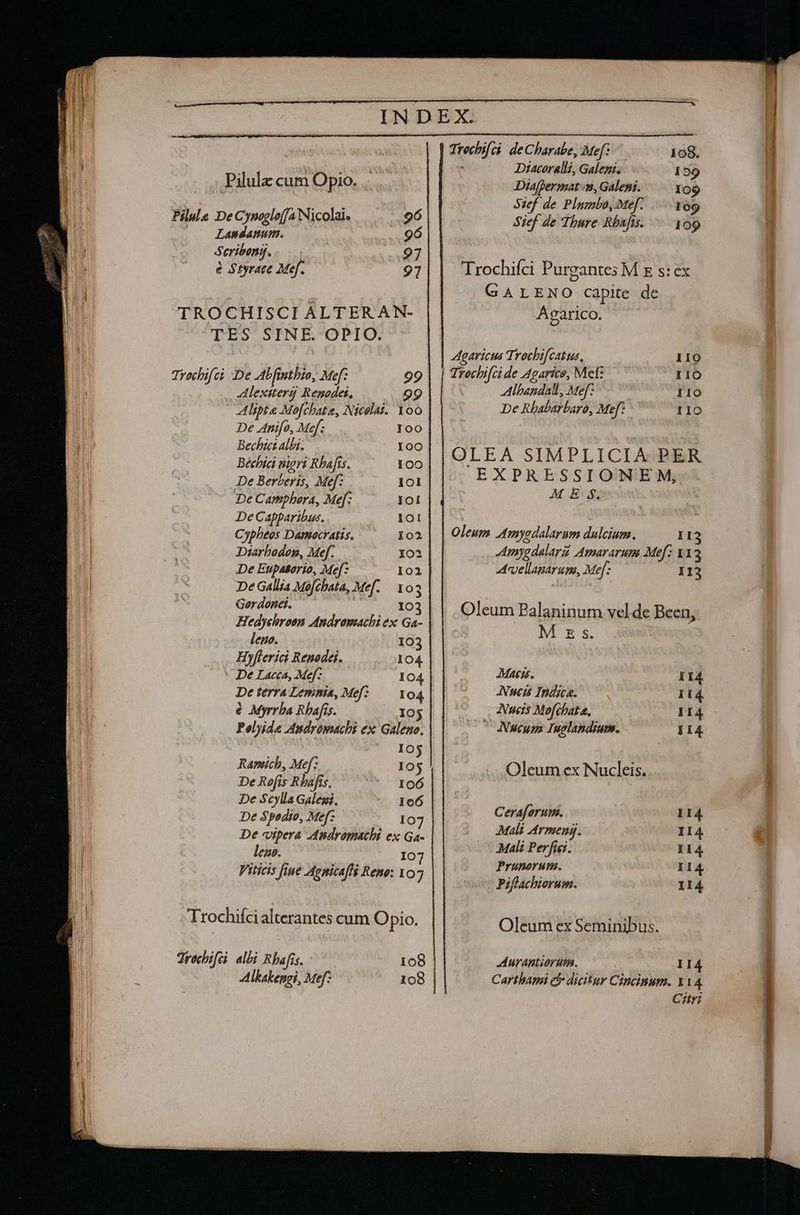 INDEX.
Pilulæ cum Opio.
Pilulæ De Cynogloſſa Nicolai. 96
Laudanum. 96
Scribonij. 97
è Styrace Meſ. 97
TROCHISCI ALTERAN-
TES SINE OPIO.
Trochiſci De Abſinthio, Meſ: 99
Alexiterij Renodei, 99
Alipta Moſchata, Nicolai. 100
De Aniſo, Meſ: 100
Bechici albi. 100
Bechici nigri Rhaſis. 100
De Berberis, Meſ: 101
De Camphora, Meſ: 101
De Capparibus. 101
Cypheos Damocratis. 102
Diarhodon, Meſ. 102
De Eupatorio, Meſ: 102
De Gallia Moſchata, Meſ. 103
Gordonei. 103
Hedychroon Andromachi ex Ga-
leno. 103
Hyſterici Renodei. 104
De Lacca, Meſ: 104
De terra Lemnia, Meſ: 104
è Myrrha Rhaſis. 105
Polyida Andromachi ex Galeno.
105
Ramich, Meſ: 105
De Roſis Rhaſis. 106
De Scylla Galeni. 106
De Spodio, Meſ: 107
De vipera Andromachi ex Ga-
leno. 107
Viticis ſiue Agnicaſti Reno: 107
Trochiſci alterantes cum Opio.
Trochiſci albi Rhaſis. 108
Alkakengi, Meſ: 108
Trochiſci de Charabe, Meſ: 108.
Diacoralli, Galeni. 109
Diaſpermaton, Galeni. 109
Sief de Plumbo, Meſ: 109
Sief de Thure Rhaſis. 109
Trochiſci Purgantes MES: ex
GALENO capite de
Agarico.
Agaricus Trochiſcatus, 110
Trochiſci de Agarico, Meſ: 110
Alhandall, Meſ: 110
De Rhabarbaro, Meſ: 110
OLEA SIMPLICIA PER
EXPRESSIONEM,
MES.
Oleum Amygdalarum dulcium. 113
Amygdalarũ Amararum Meſ: 113
Avellanarum, Meſ: 113
Oleum Balaninum vel de Been,
MES.
Macis. 114
Nucis Indicæ. 114
Nucis Moſchatæ, 114
Nucum Iuglandium. 114
Oleum ex Nucleis.
Ceraſorum. 114
Mali Armenij. 114
Mali Perſici. 114
Prunorum. 114
Piſtachiorum. 114
Oleum ex Seminibus.
Aurantiorum. 114
Carthami & dicitur Cincinum. 114
Citri